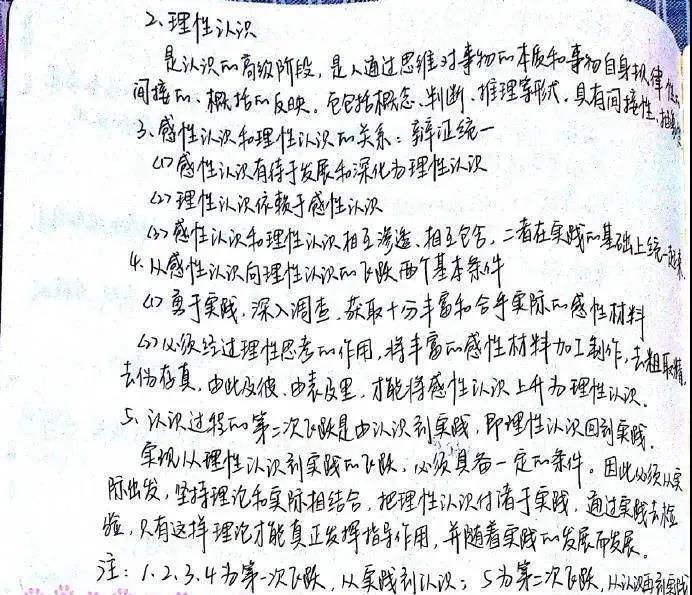 2、理性认识
是认识的高级阶段，是人通过思维对事物的本质和事物自身规律性的
间接的、概括的反映。包包括概念、判断、推理等形式。具有间接性、抽象
3、感性认识和理性认识的关系：辩证统一
(1) 感性认识有待于发展和深化为理性认识
(2) 理性认识依赖于感性认识
(3) 感性认识和理性认识相互渗透、相互包含，二者在实践的基础上统一起来
4、从感性认识向理性认识的飞跃两个基本条件
(1) 勇于实践，深入调查，获取十分丰富和合乎实际的感性材料
(2) 必须经过理性思考的作用，将丰富的感性材料加工制作，去粗取精，
去伪存真，由此及彼、由表及里，才能将感性认识上升为理性认识。
5、认识过程的第二次飞跃是由认识到实践，即理性认识回到实践。
实现从理性认识到实践的飞跃，必须具备一定的条件。因此必须从实
际出发，坚持理论和实际相结合，把理性认识付诸于实践，通过实践去检
验，只有这样理论才能真正发挥指导作用，并随着实践的发展而发展。
注：1.2.3.4为第一次飞跃，从实践到认识；5为第二次飞跃，从认识再到实践